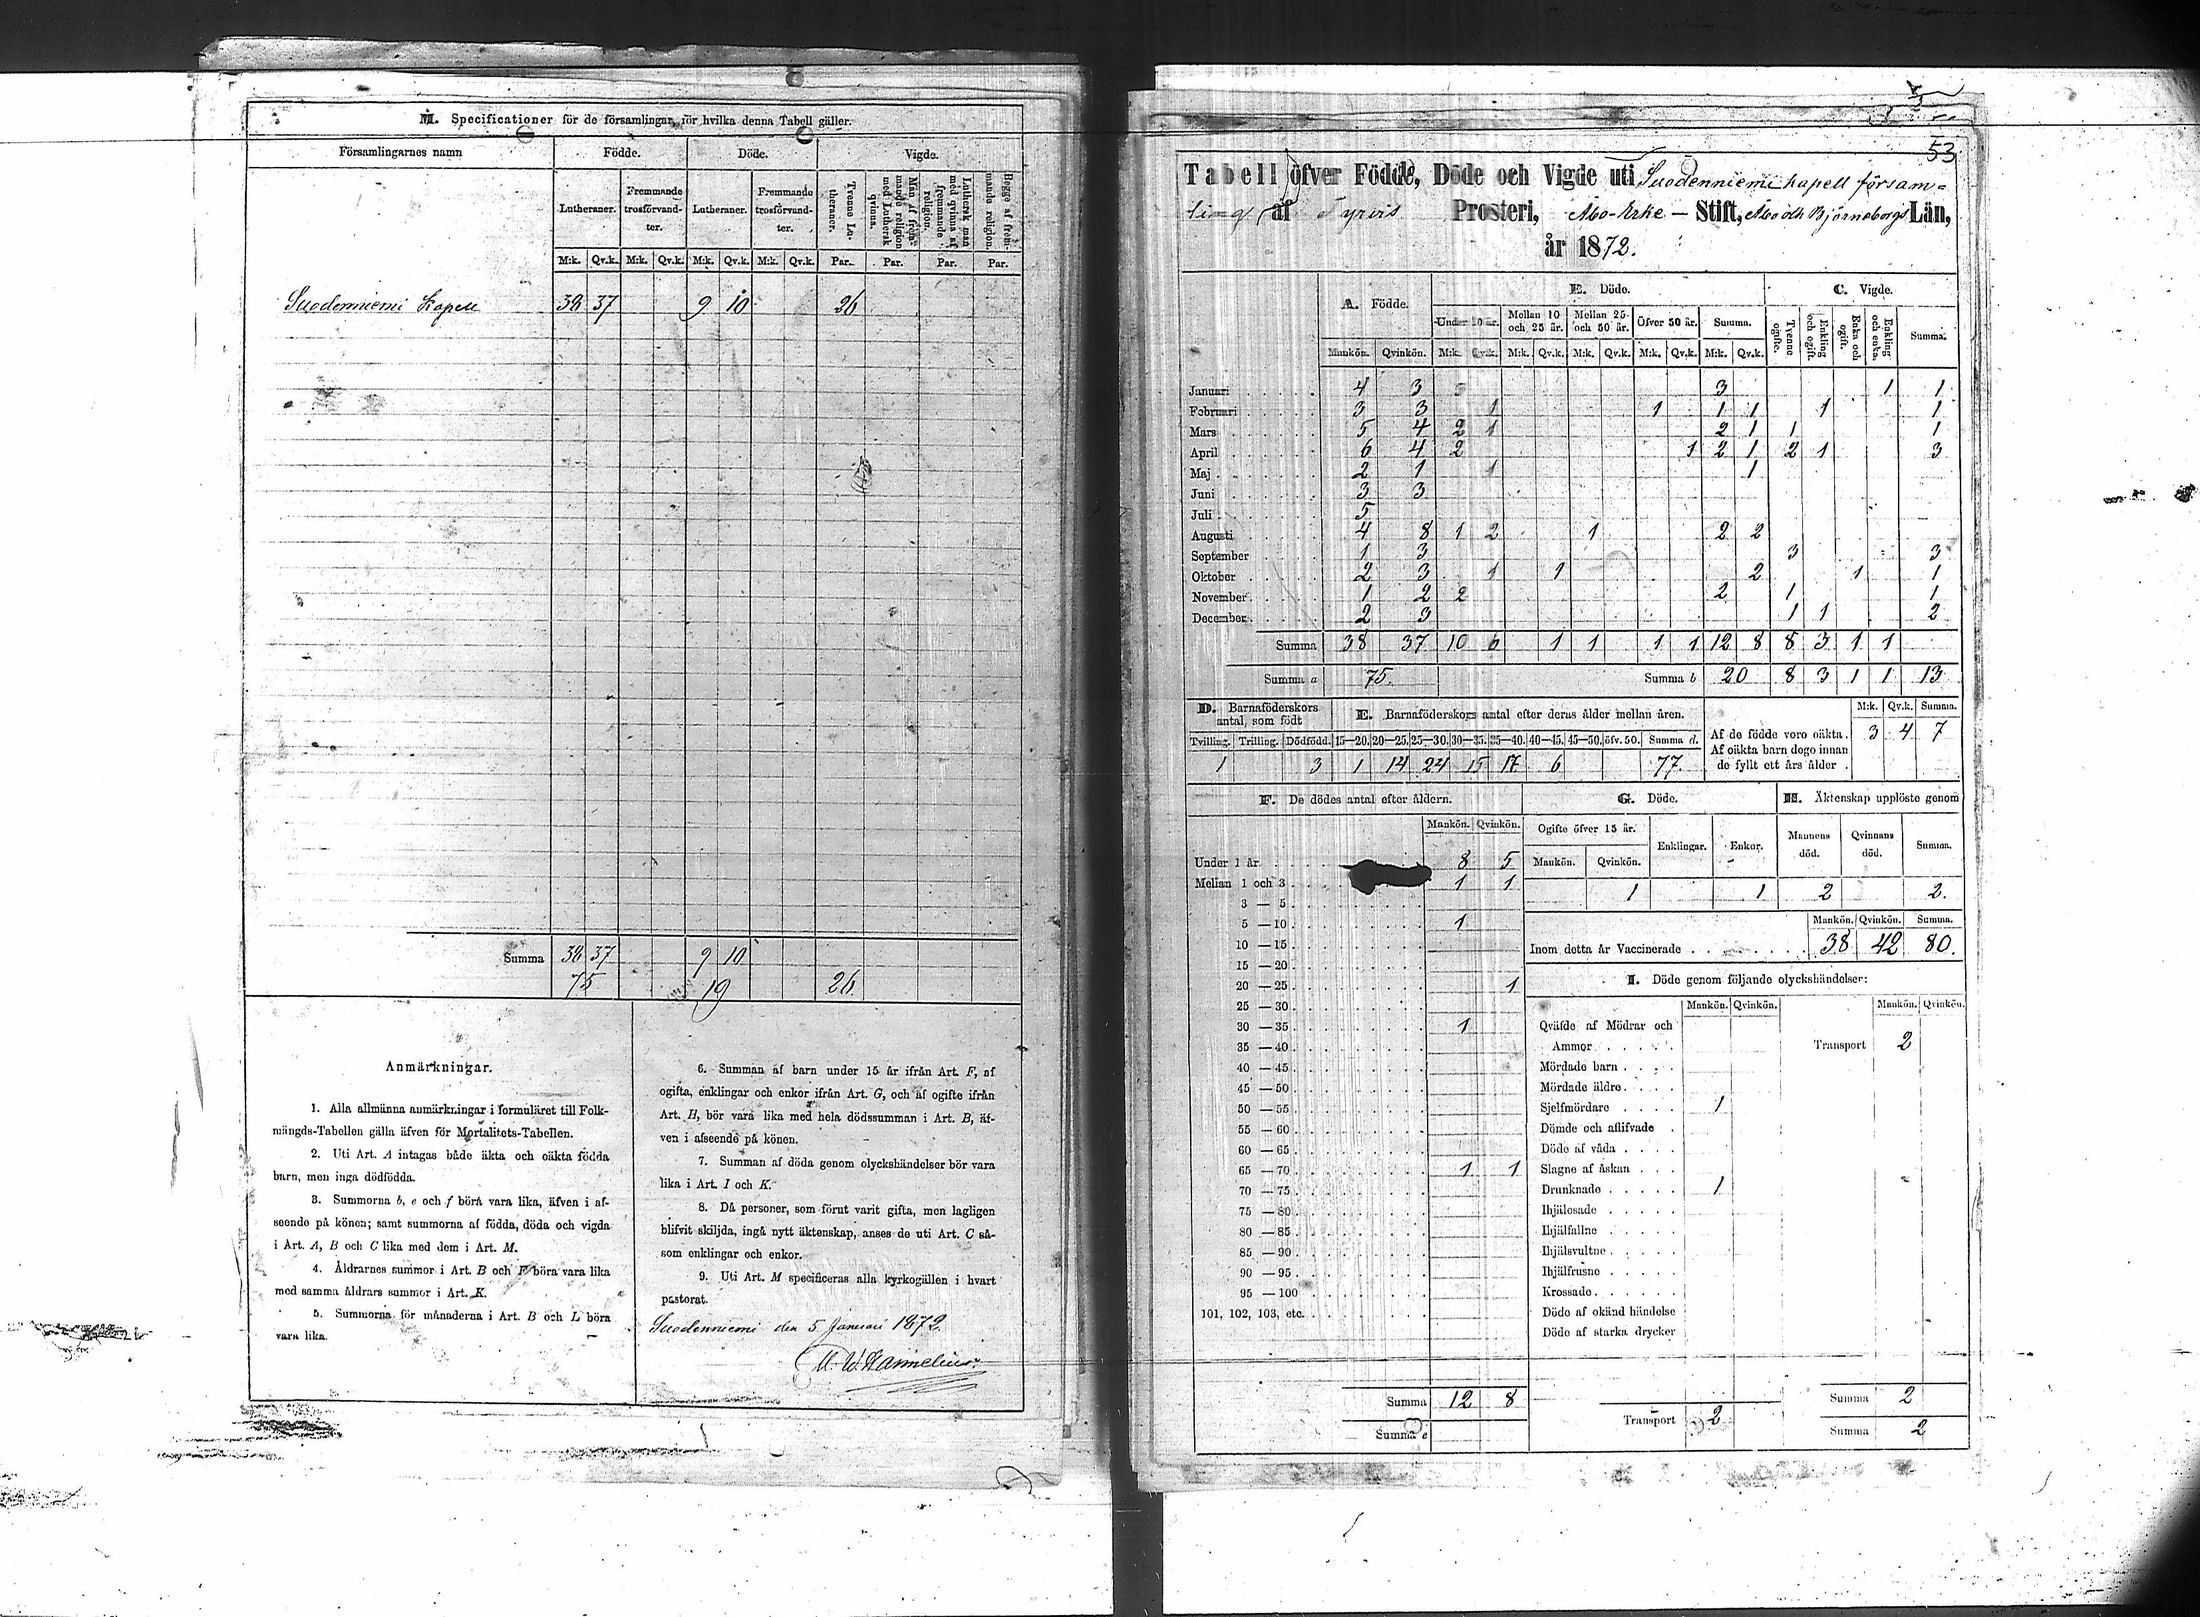 M. Specificationer för de församlingar, för hvilka denna Tabell gäller.
Församlingarnes namn Födde. Döde. Vigde.
Lutheraner. Fremmande trosförvandter. Lutheraner. Fremmande trosförvandter. Tvenne Lutheraner. Man af fremmande religion med Luthersk qvinna. Luthersk man med qvinna af fremmande religion. Begge af fremmande religion.
M:k. Qv.k. M:k. Qv.k. M:k. Qv.k. M:k. Qv.k. Par. Par. Par. Par.
Suodenniemi Kapell 38 37 9 10 26
Summa 38 37 9 10
75 19 26
Anmärkningar.
1. Alla allmänna anmärkningar i formuläret till Folk-
mängds-Tabellen gälla äfven för Mortalitets-Tabellen.
2. Uti Art. A intagas både äkta och oäkta födda
barn, men inga dödfödda.
3. Summorna b, e och f böra vara lika, äfven i af-
seende på könen; samt summorna af födda, döda och vigda
i Art. A, B och C lika med dem i Art. M.
4. Åldrarnes summor i Art. B och F böra vara lika
med samma åldrars summor i Art. K.
5. Summorna för månaderna i Art. B och L böra
vara lika.
6. Summan af barn under 15 år ifrån Art. F, af
ogifta, enklingar och enkor ifrån Art. G, och af ogifte ifrån
Art. H, bör vara lika med hela dödssumman i Art. B, äf-
ven i afseende på könen.
7. Summan af döda genom olyckshändelser bör vara
lika i Art. I och K.
8. Då personer, som förut varit gifta, men lagligen
blifvit skiljda, ingå nytt äktenskap, anses de uti Art. C så-
som enklingar och enkor.
9. Uti Art. M specificeras alla kyrkogällen i hvart
pastorat.
Suodenniemi den 5 Januari 1872.
53
Tabell öfver Födde, Döde och Vigde uti Suodenniemi kapell församling
af Tyrvis Prosteri, Åbo-Erke-Stift, Åbo och Björneborgs Län,
år 1872.
A. Födde. B. Döde. C. Vigde.
Under 10 år. Mellan 10 och 25 år. Mellan 25 och 50 år. Öfver 50 år. Summa. Tvenne ogifte. Enkling och ogift. Enka och ogift. Enkling och enka. Summa.
Mankön. Qvinkön. M:k. Qv.k. M:k. Qv.k. M:k. Qv.k. M:k. Qv.k. M:k. Qv.k.
Januari 4 3 3 3 1 1
Februari 3 3 1 1 1 1 1 1
Mars 5 4 2 1 2 1 1 1
April 6 4 2 1 2 1 2 1 3
Maj 2 1 1 1
Juni 3 3
Juli 5
Augusti 4 8 1 2 1 2 2
September 1 3 3 3
Oktober 2 3 1 1 2 1 1
November 1 2 2 2 1 1
December 2 3 1 1 2
Summa 38 37 10 6 1 1 1 1 12 8 8 3 1 1
Summa a 75. Summa b 20 8 3 1 1 13
D. Barnaföderskors antal, som födt
E. Barnaföderskors antal efter deras ålder mellan åren.
Tvilling. Trilling. Dödfödd. 15—20. 20—25. 25—30. 30—35. 35—40. 40—45. 45—50. öfv. 50. Summa d.
1 3 1 14 24 15 17 6 77.
M:k. Qv.k. Summa.
Af de födde voro oäkta. 3 4 7
Af oäkta barn dogo innan
de fyllt ett års ålder.
F. De dödes antal efter åldern.
Mankön. Qvinkön.
Under 1 år 8 5
Mellan 1 och 3 1 1
3 — 5
5 — 10 1
10 — 15
15 — 20
20 — 25 1
25 — 30
30 — 35 1
35 — 40
40 — 45
45 — 50
50 — 55
55 — 60
60 — 65
65 — 70 1 1
70 — 75
75 — 80
80 — 85
85 — 90
90 — 95
95 — 100
101, 102, 103, etc.
Summa 12 8
Summa e
G. Döde.
Ogifte öfver 15 år. Enklingar. Enkor.
Mankön. Qvinkön.
1 1
H. Äktenskap upplöste genom
Mannens död. Qvinnans död. Summa.
2 2.
Mankön. Qvinkön. Summa.
Inom detta år Vaccinerade 38 42 80.
I. Döde genom följande olyckshändelser:
Mankön. Qvinkön. Mankön. Qvinkön.
Qväfde af Mödrar och
Ammor Transport 2
Mördade barn
Mördade äldre
Sjelfmördare 1
Dömde och aflifvade
Döde af våda
Slagne af åskan
Drunknade 1
Ihjälosade
Ihjälfallne
Ihjälsvultne
Ihjälfrusne
Krossade
Döde af okänd händelse
Döde af starka drycker
Summa 2
Transport 2 Summa 2